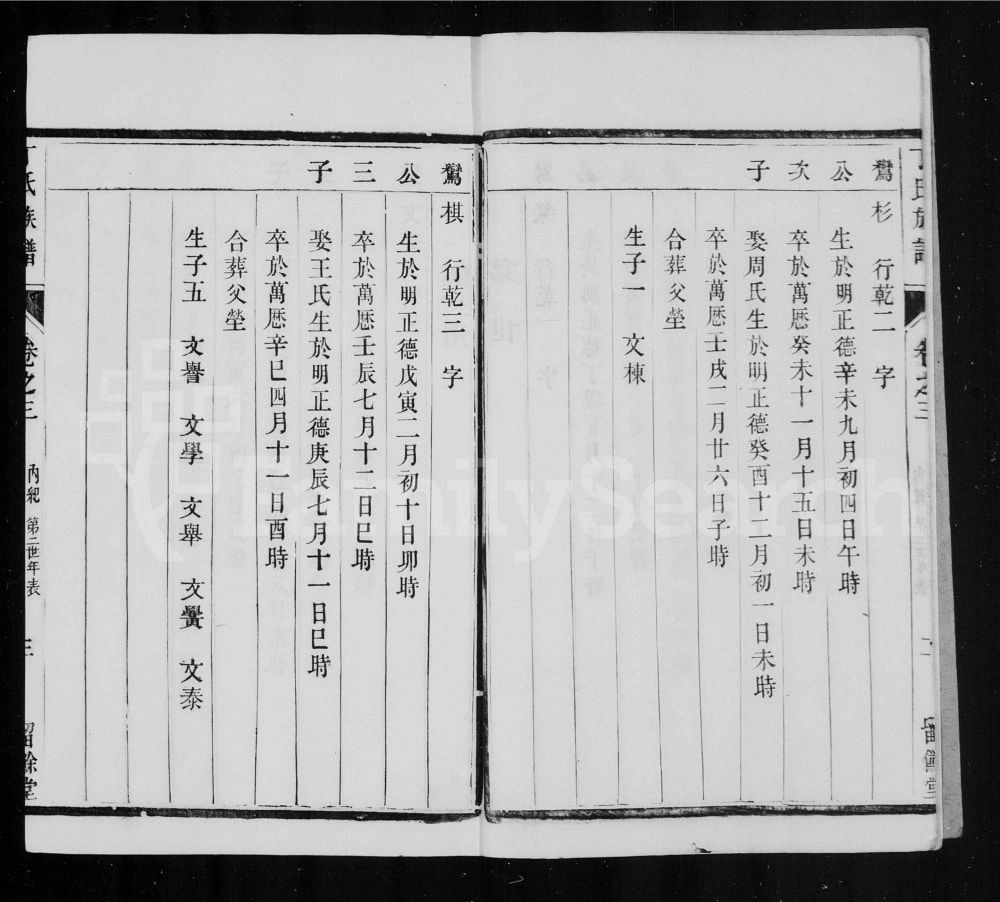 丁氏族譜 卷之三 二 留餘堂
鸞杉 行乾二 字
公 生於明正德辛未九月初四日午時
次 卒於萬厯癸未十一月十五日未時
子 娶周氏生於明正德癸酉十二月初一日未時
卒於萬厯壬戌二月廿六日子時
合葬父塋
生子一 文棟
鸞棋 行乾三 字
公 生於明正德戊寅二月初十日卯時
三 卒於萬厯壬辰七月十二日巳時
子 娶王氏生於明正德庚辰七月十一日巳時
卒於萬厯辛巳四月十一日酉時
合葬父塋
生子五 文譽 文學 文舉 文黌 文泰
丁氏族譜 卷之三 內紀 第二世年表 三 留餘堂
FamilySearch